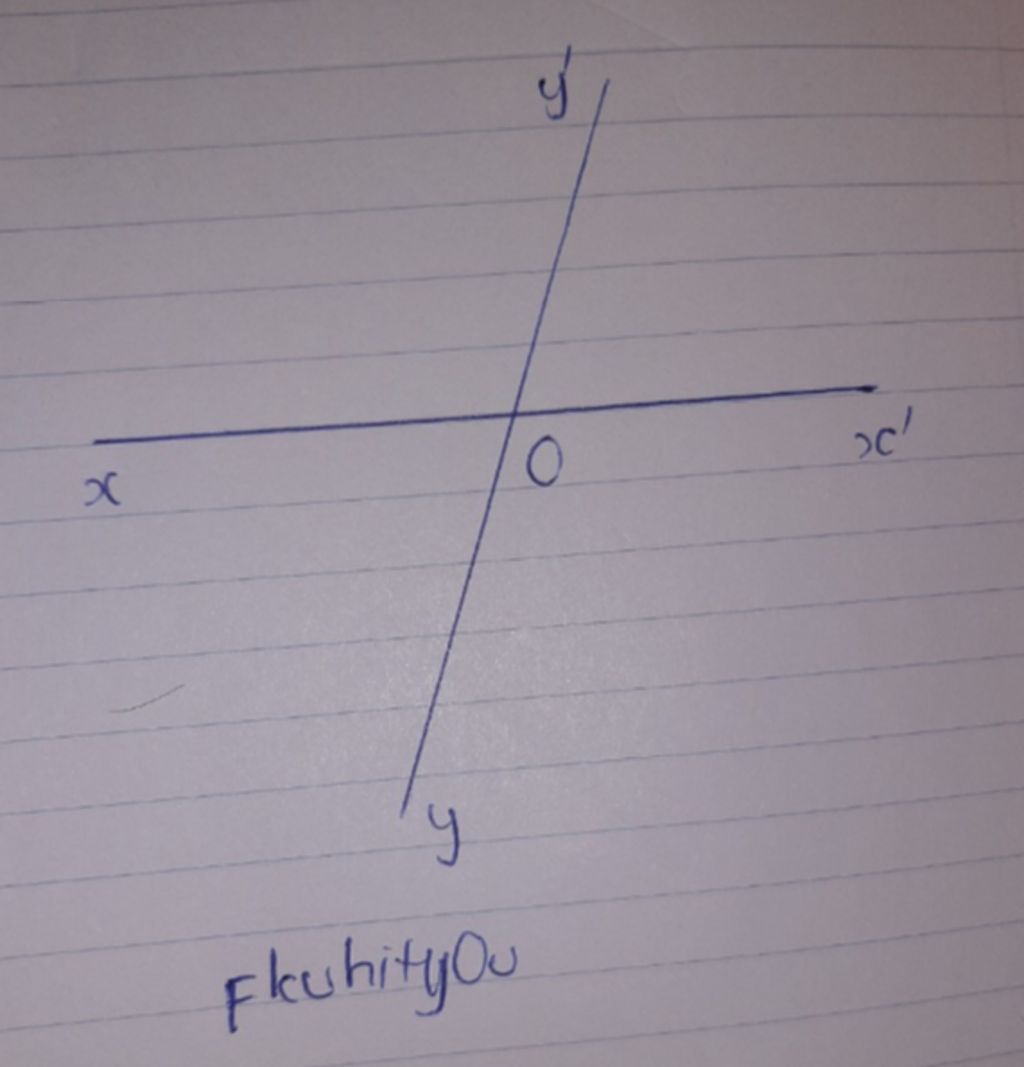 y'
O
x
x'
y
FkuhityOu